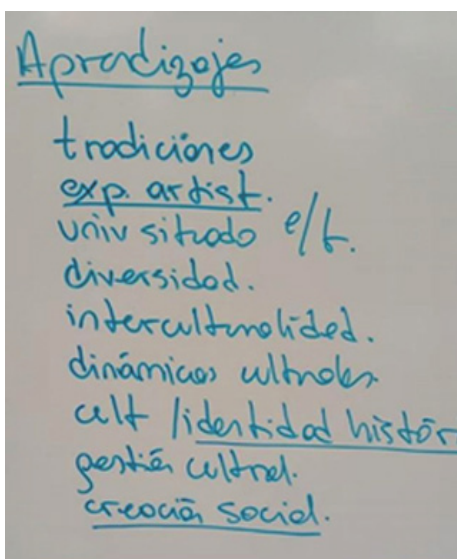 Aprendizajes
tradiciones
exp. artist.
univ situado e/t.
diversidad.
interculturalidad.
dinámicas culturales.
cult / identidad histór
gestión cultural.
creación social.